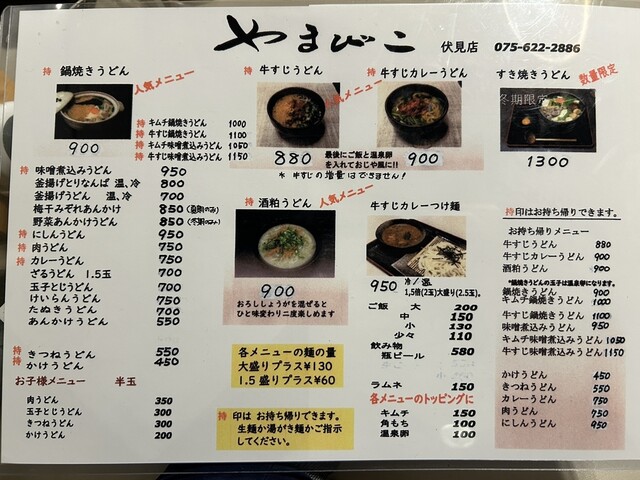 やまびこ 伏見店 075-622-2886
持 鍋焼きうどん
人気メニュー
900
持 キムチ鍋焼きうどん 1000
持 牛すじ鍋焼きうどん 1100
持 キムチ味噌煮込みうどん 1050
持 牛すじ味噌煮込みうどん 1150
持 味噌煮込みうどん 950
釜揚げとりなんば 温、冷 800
釜揚げうどん 温、冷 700
梅干みぞれあんかけ 850
野菜あんかけうどん 850
持 にしんうどん 950
持 肉うどん 750
持 カレーうどん 750
ざるうどん 1.5玉 700
玉子とじうどん 700
けいらんうどん 750
たぬきうどん 700
あんかけうどん 550
持 きつねうどん 550
持 かけうどん 450
お子様メニュー 半玉
肉うどん 350
玉子とじうどん 300
きつねうどん 300
かけうどん 200
持 牛すじうどん
人気メニュー
880
最後にご飯と温泉卵
を入れておじや風に!!
持 牛すじカレーうどん
900
* 牛すじの増量はできません!
持 酒粕うどん
人気メニュー
900
おろししょうがを混ぜると
ひと味変わり二度楽しめます
牛すじカレーつけ麺
950 冷/温
1,5倍(2玉)大盛り(2.5玉)。
ご飯 大 200
中 150
小 130
少々 110
飲み物
瓶ビール 580
ラムネ 150
各メニューのトッピングに
キムチ 150
角もち 100
温泉卵 100
各メニューの麺の量
大盛りプラス¥130
1.5盛りプラス¥60
持 印は お持ち帰りできます。
生麺か湯がき麺かご指示
してください。
すき焼きうどん 数量限定
冬期限定
1300
持印はお持ち帰りできます。
お持ち帰りメニュー
牛すじうどん 880
牛すじカレーうどん 900
酒粕うどん 900
*鍋焼きうどんの玉子は温泉卵になります。
鍋焼きうどん 900
キムチ鍋焼きうどん 1000
牛すじ鍋焼きうどん 1100
味噌煮込みうどん 950
キムチ味噌煮込みうどん 1050
牛すじ味噌煮込みうどん 1150
かけうどん 450
きつねうどん 550
カレーうどん 750
肉うどん 750
にしんうどん 950